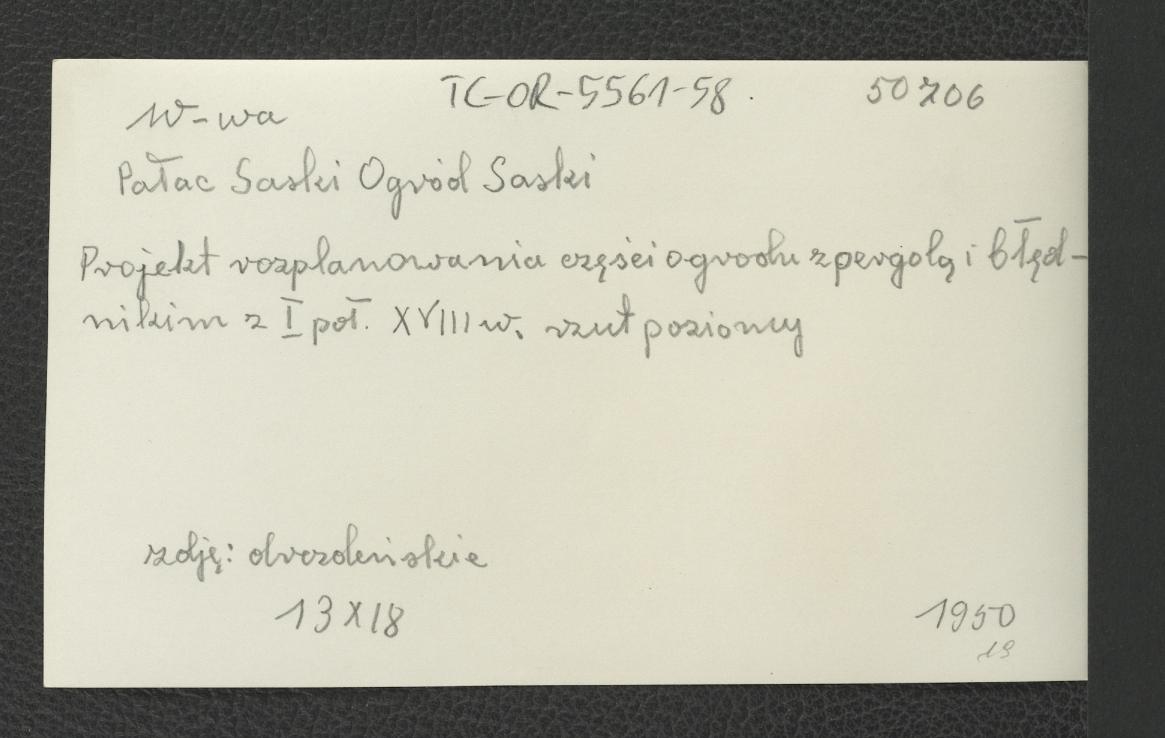 TC-OR-5561-58. 50706
W-wa
Pałac Saski Ogród Saski
Projekt rozplanowania części ogrodu z pergolą i błęd-
nikim z I poł. XVIII w. rzut poziomy
zdję: drezdeńskie
13 X 18
1950
19